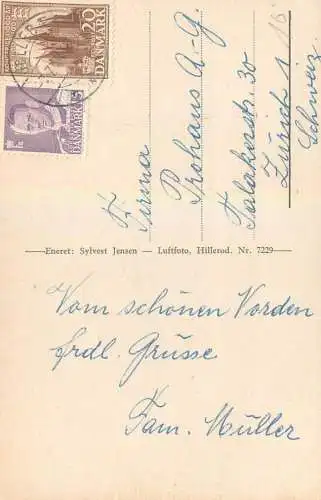 20
DANMARK
5
DANMARK
Firma
Prohaus A-G.
Talakerstr. 30
Zürich 1
Schweiz.
16
Eneret: Sylvest Jensen — Luftfoto, Hillerod. Nr. 7229
Vom schönen Norden
frdl. Grüsse
Fam. Müller